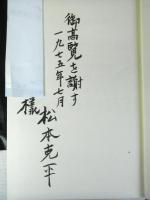 御高覧を謝す
一九七五年七月
松本克平
様